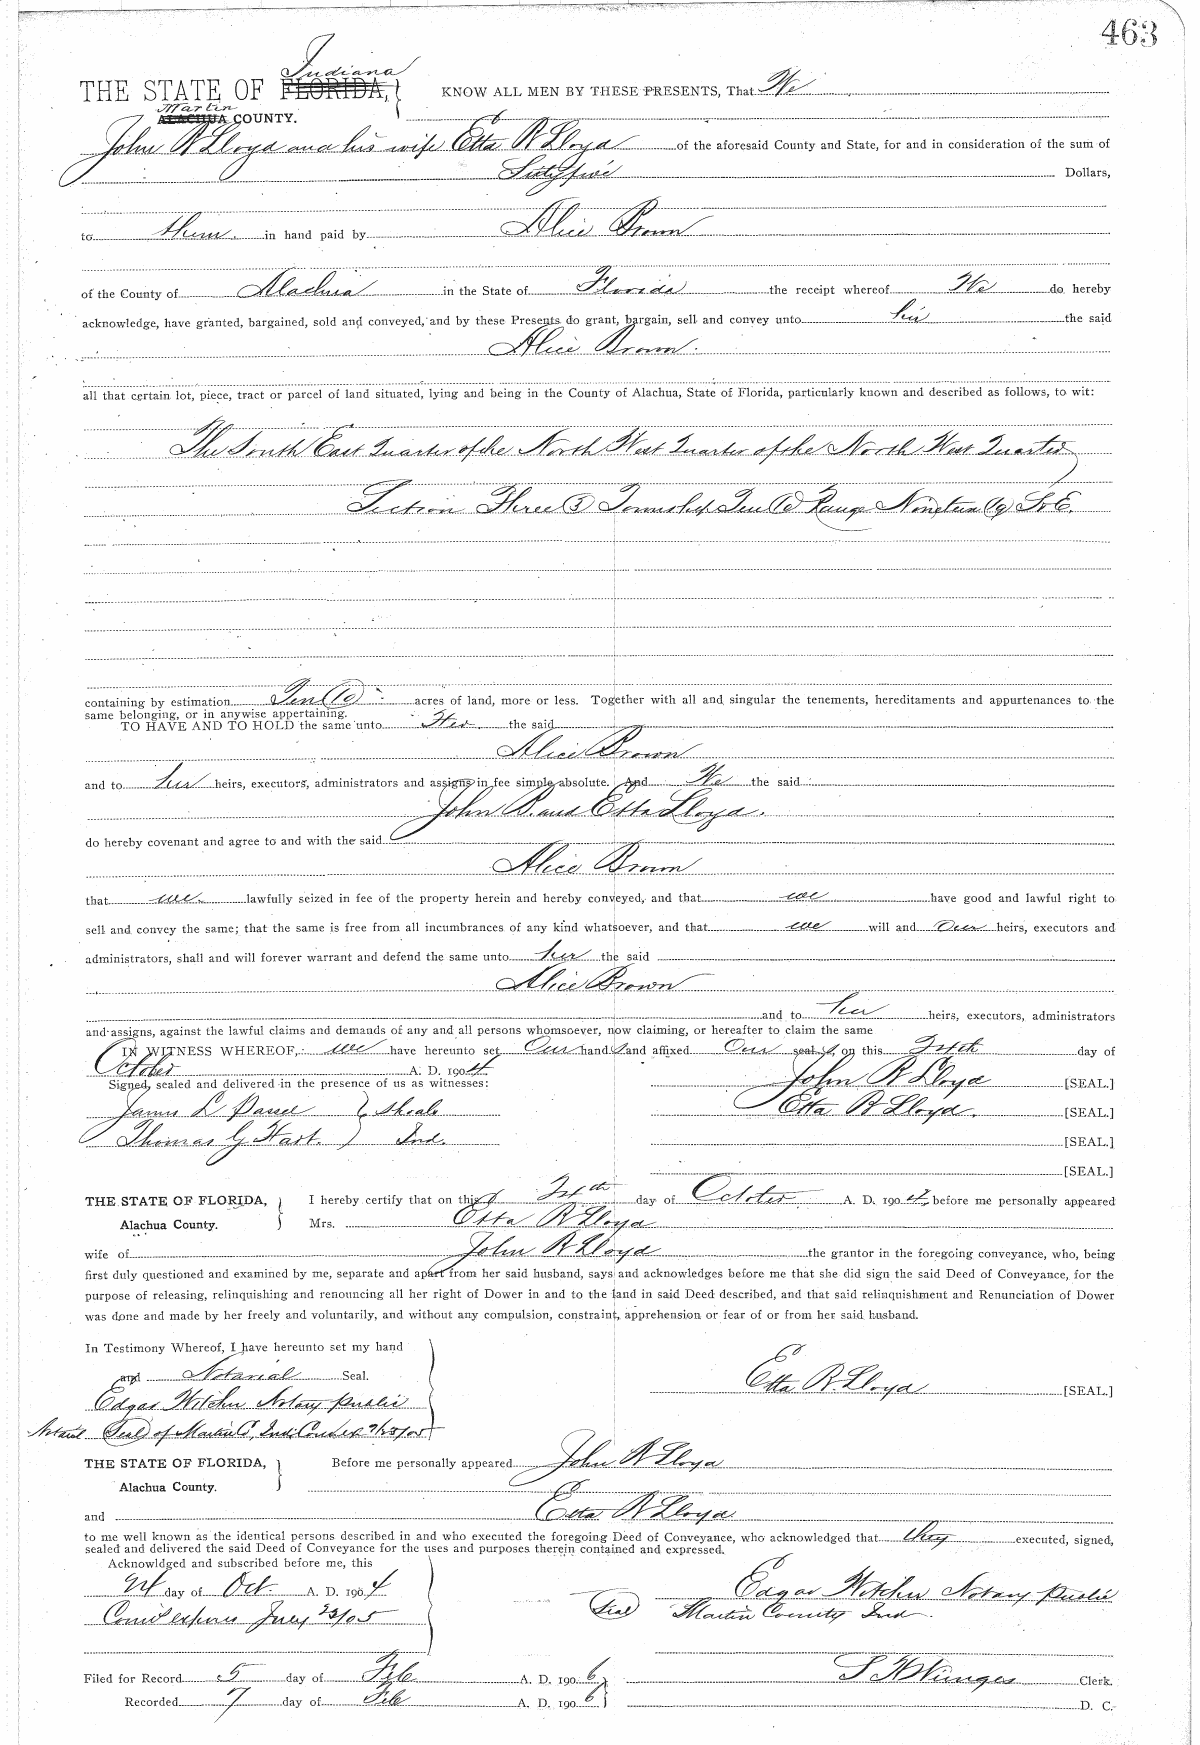 463
Indiana
THE STATE OF FLORIDA, KNOW ALL MEN BY THESE PRESENTS, That We
Martin
ALACHUA COUNTY.
John R Lloyd and his wife Etta R Lloyd of the aforesaid County and State, for and in consideration of the sum of
Sixty five Dollars,
to them in hand paid by Alice Brown
of the County of Alachua in the State of Florida the receipt whereof We do hereby
acknowledge, have granted, bargained, sold and conveyed, and by these Presents do grant, bargain, sell and convey unto her the said
Alice Brown.
all that certain lot, piece, tract or parcel of land situated, lying and being in the County of Alachua, State of Florida, particularly known and described as follows, to wit:
The South East Quarter of the North West Quarter of the North West Quarter
Section Three (3) Township Ten (10) Range Nineteen (19) S & E.
containing by estimation Ten (10) acres of land, more or less. Together with all and singular the tenements, hereditaments and appurtenances to the
same belonging, or in anywise appertaining.
TO HAVE AND TO HOLD the same unto Her the said
Alice Brown
and to her heirs, executors, administrators and assigns in fee simple absolute. And We the said
John R. and Etta Lloyd.
do hereby covenant and agree to and with the said
Alice Brown
that we lawfully seized in fee of the property herein and hereby conveyed, and that we have good and lawful right to
sell and convey the same; that the same is free from all incumbrances of any kind whatsoever, and that we will and Our heirs, executors and
administrators, shall and will forever warrant and defend the same unto her the said
Alice Brown
and to her heirs, executors, administrators
and assigns, against the lawful claims and demands of any and all persons whomsoever, now claiming, or hereafter to claim the same
IN WITNESS WHEREOF, we have hereunto set Our hand s and affixed Our seal s, on this 24th day of
October A. D. 1904
Signed, sealed and delivered in the presence of us as witnesses: John R Lloyd [SEAL.]
James L Shoals Etta R Lloyd. [SEAL.]
Thomas G Hart. Ind. [SEAL.]
[SEAL.]
THE STATE OF FLORIDA, I hereby certify that on this 24th day of October A. D. 1904, before me personally appeared
Alachua County. Mrs. Etta R Lloyd
wife of John R Lloyd the grantor in the foregoing conveyance, who, being
first duly questioned and examined by me, separate and apart from her said husband, says and acknowledges before me that she did sign the said Deed of Conveyance, for the
purpose of releasing, relinquishing and renouncing all her right of Dower in and to the land in said Deed described, and that said relinquishment and Renunciation of Dower
was done and made by her freely and voluntarily, and without any compulsion, constraint, apprehension or fear of or from her said husband.
In Testimony Whereof, I have hereunto set my hand
and Notarial Seal. Etta R. Lloyd [SEAL.]
Edgar Witcher Notary Public
Notarial Seal of Martin Co, Ind
THE STATE OF FLORIDA, Before me personally appeared John R Lloyd
Alachua County.
and Etta R Lloyd
to me well known as the identical persons described in and who executed the foregoing Deed of Conveyance, who acknowledged that they executed, signed,
sealed and delivered the said Deed of Conveyance for the uses and purposes therein contained and expressed.
Acknowldged and subscribed before me, this
24 day of Oct. A. D. 1904 Edgar Witcher Notary Public
Comis expires July 23/05 Seal Martin County Ind.
Filed for Record 5 day of Feb A. D. 1906 S H Wienges Clerk.
Recorded 7 day of Feb A. D. 1906 D. C.